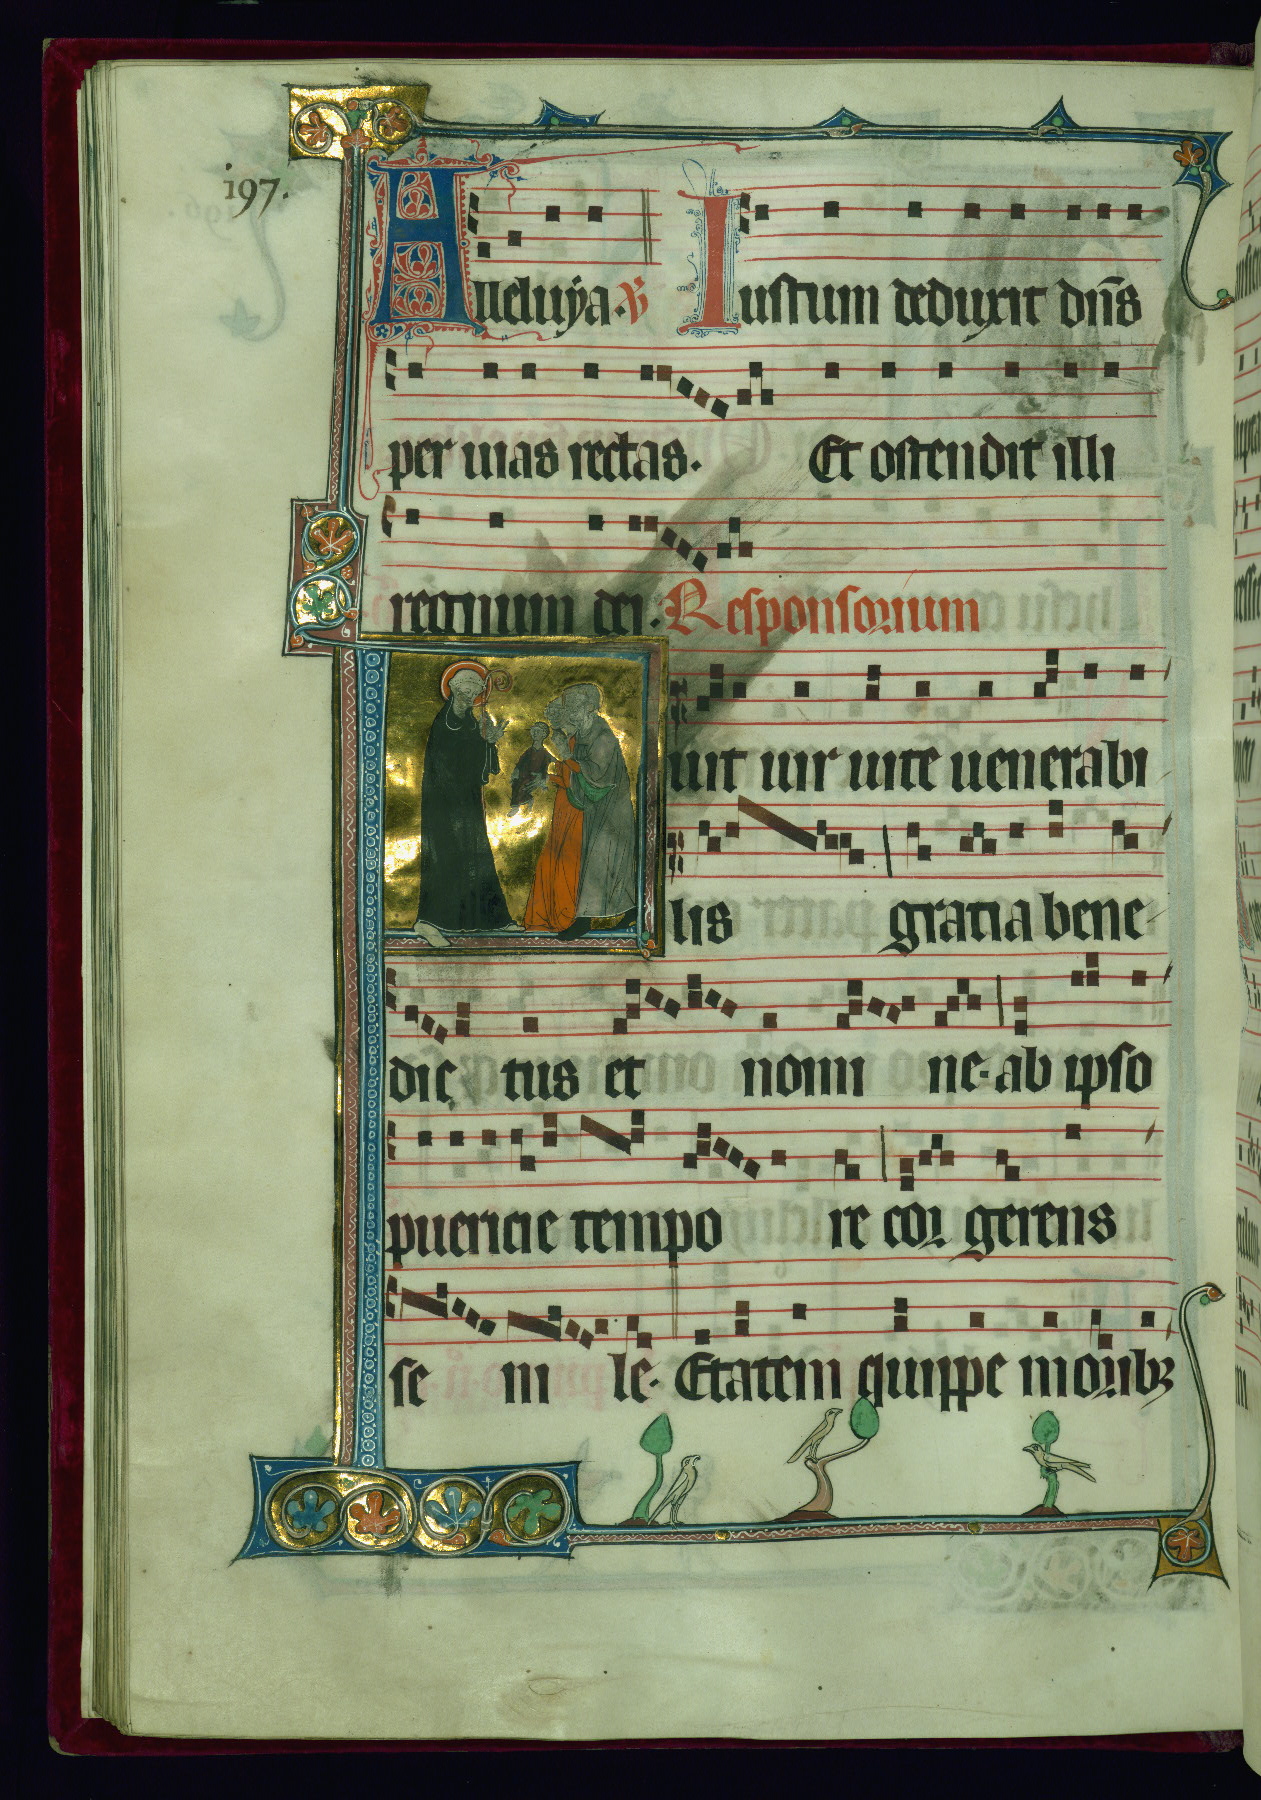 197.
Alleluÿa. ℣ Iustum deduxit dn̄s
per uias rectas. Et ostendit illi
regnum dei. Responsorium
uit uir uite uenerabi
lis gratia bene
dic tus et nomi ne. ab ipso
puericie tempo re cor gerens
se ni le. Etatem quippe moribꝫ